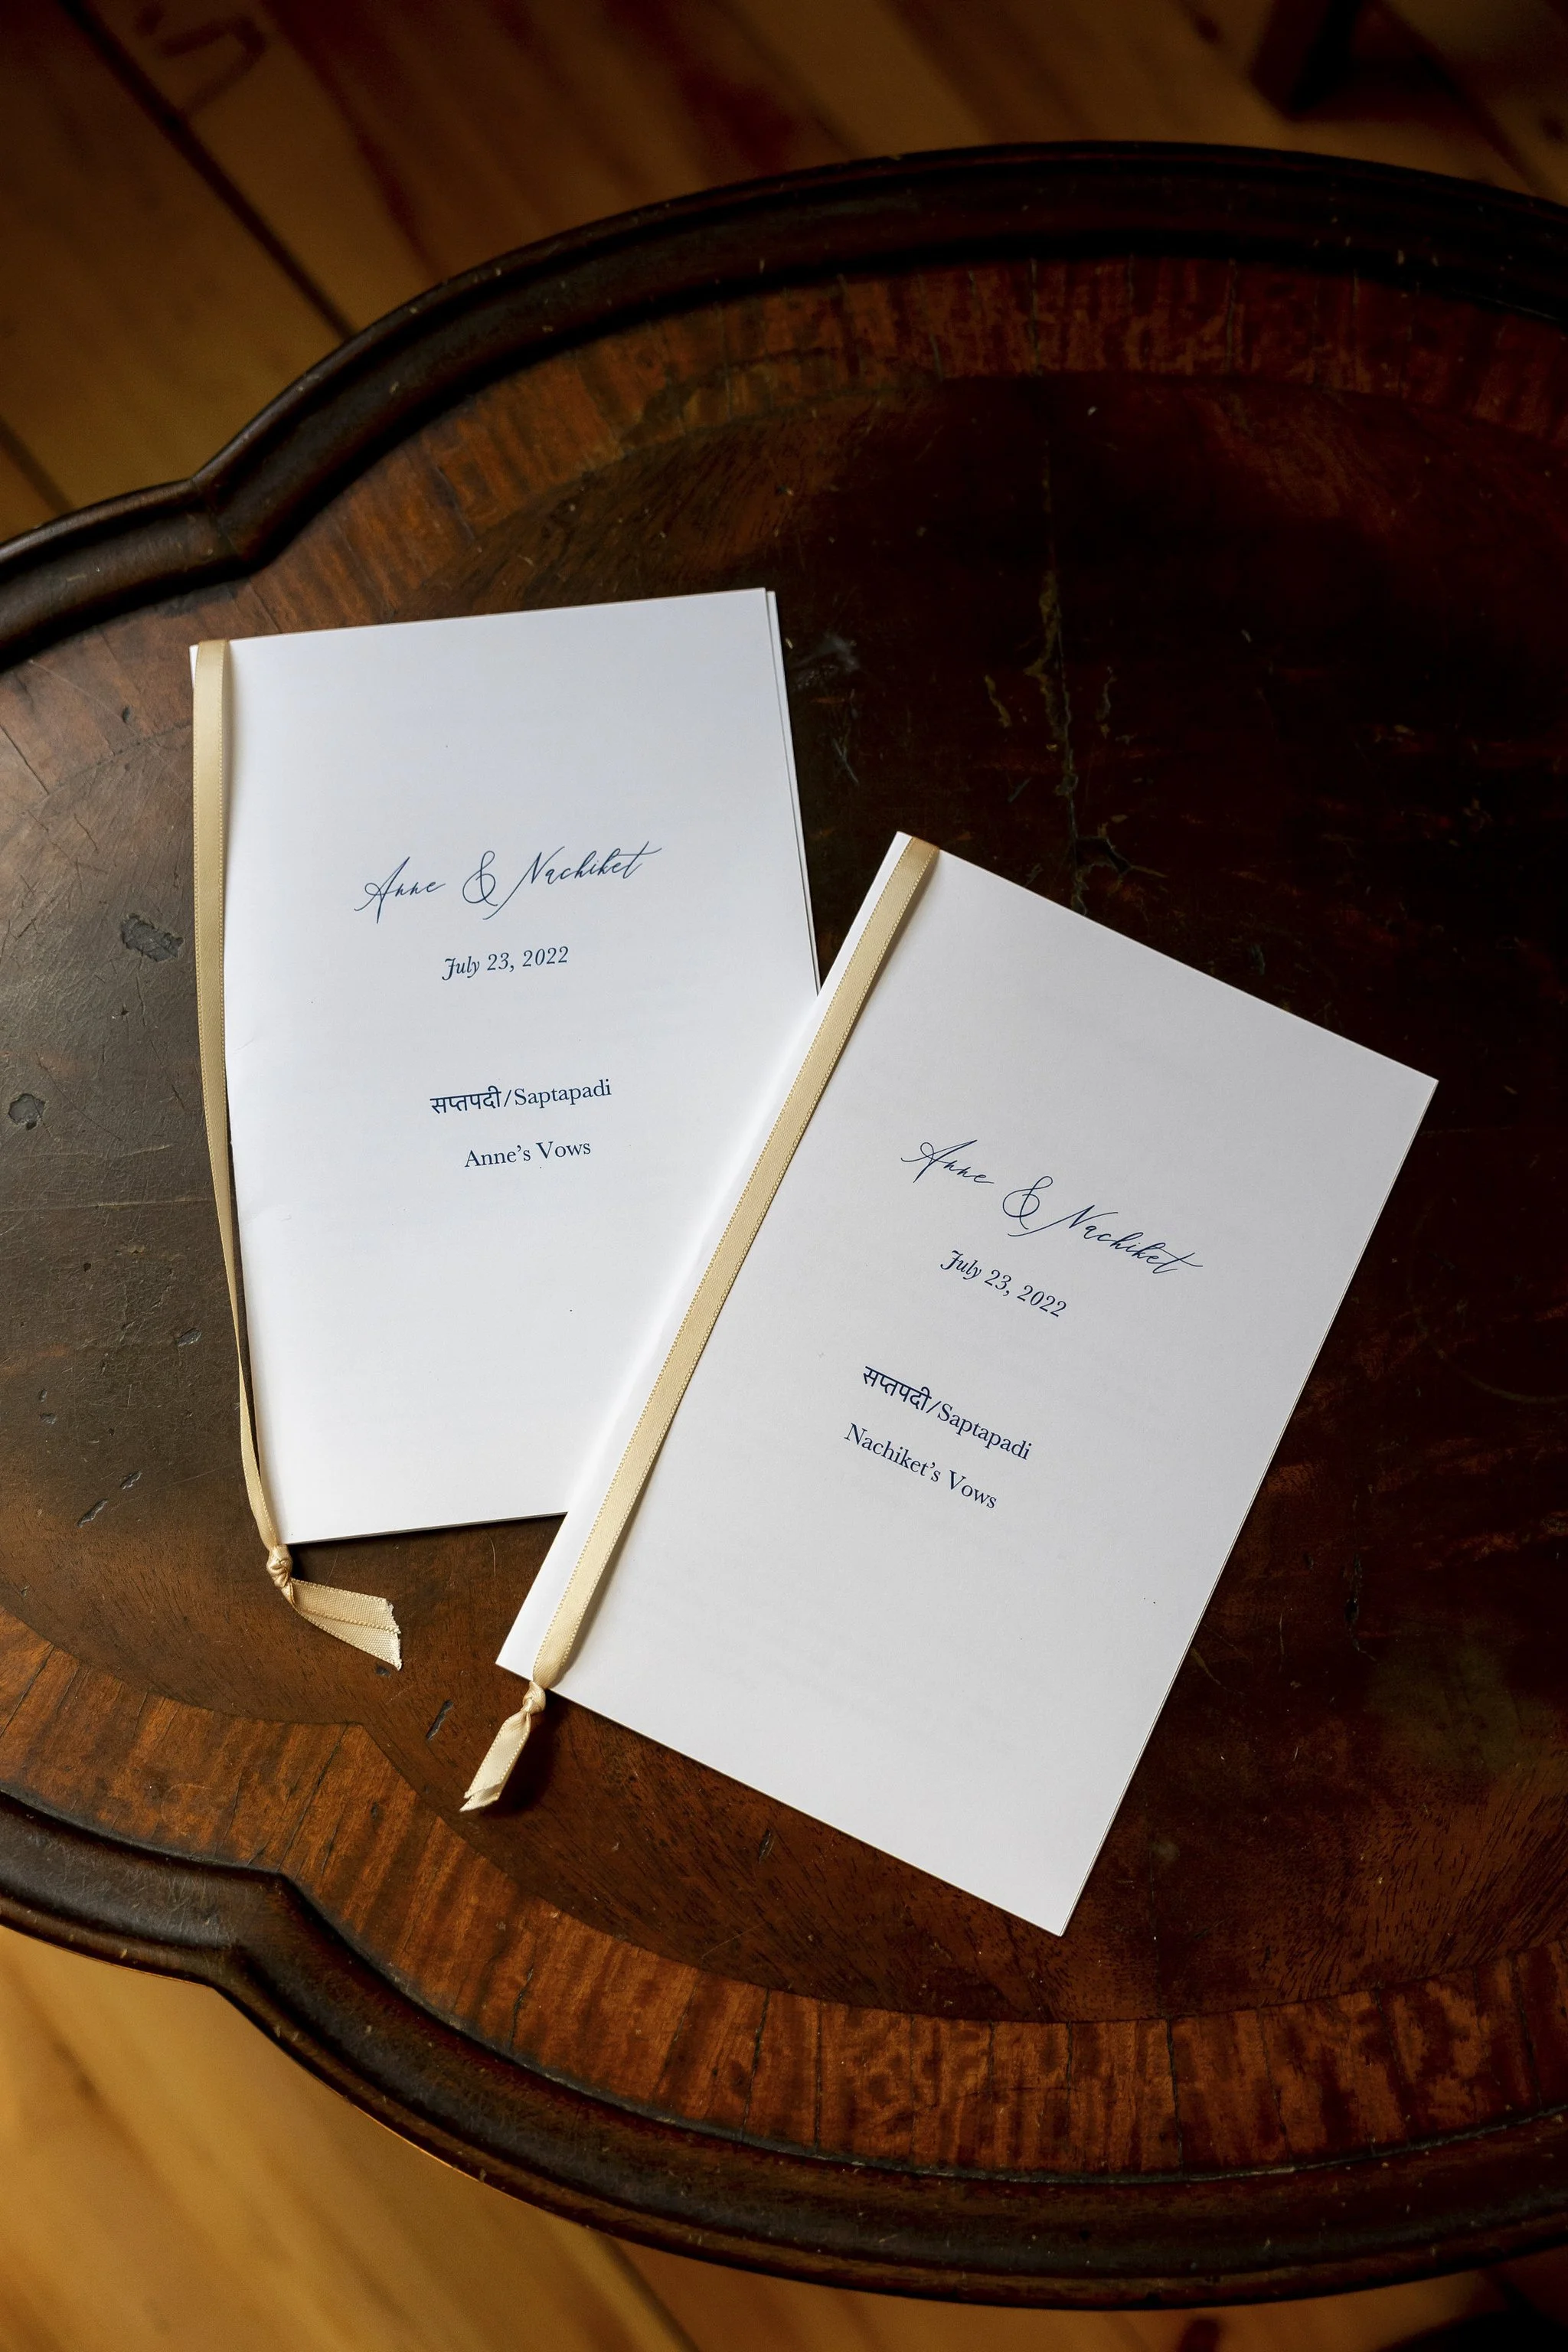 Anne & Nachiket
July 23, 2022
सप्तपदी/Saptapadi
Anne's Vows
Anne & Nachiket
July 23, 2022
सप्तपदी/Saptapadi
Nachiket's Vows